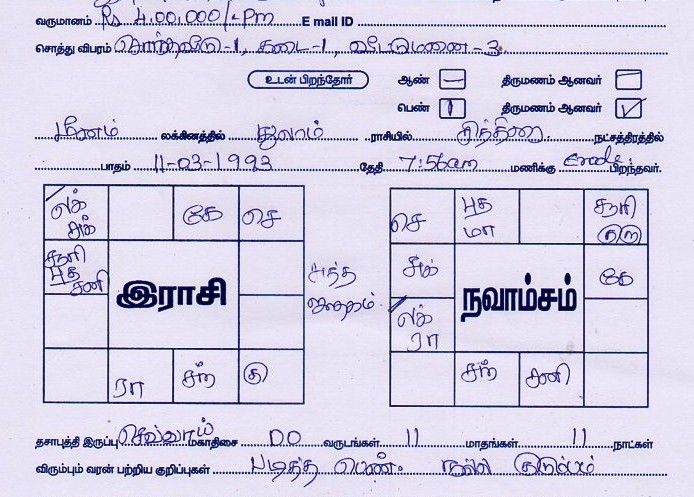 வருமானம் Rs 4,00,000/-Pm E mail ID
சொத்து விபரம் சொந்தவீடு-1, கடை-1, வீட்டுமனை-3
உடன் பிறந்தோர் ஆண் - திருமணம் ஆனவர்
பெண் 1 திருமணம் ஆனவர் ✓
மீனம் லக்கினத்தில் துலாம் ராசியில் சித்திரை நட்சத்திரத்தில்
பாதம் 11-03-1993 தேதி 7:56am மணிக்கு Erode பிறந்தவர்.
லக் சுக் கே செ
சூரி புத சனி
இராசி
ரா சந் கு
சுத்த ஜாதகம்
செ புத மா சூரி குரு
சுக் கே
லக் ரா
நவாம்சம்
சந் சனி
தசாபுத்தி இருப்பு செவ்வாய் மகாதிசை 00 வருடங்கள் 11 மாதங்கள் 11 நாட்கள்
விரும்பும் வரன் பற்றிய குறிப்புகள் படித்த பெண். நல்ல குடும்பம்